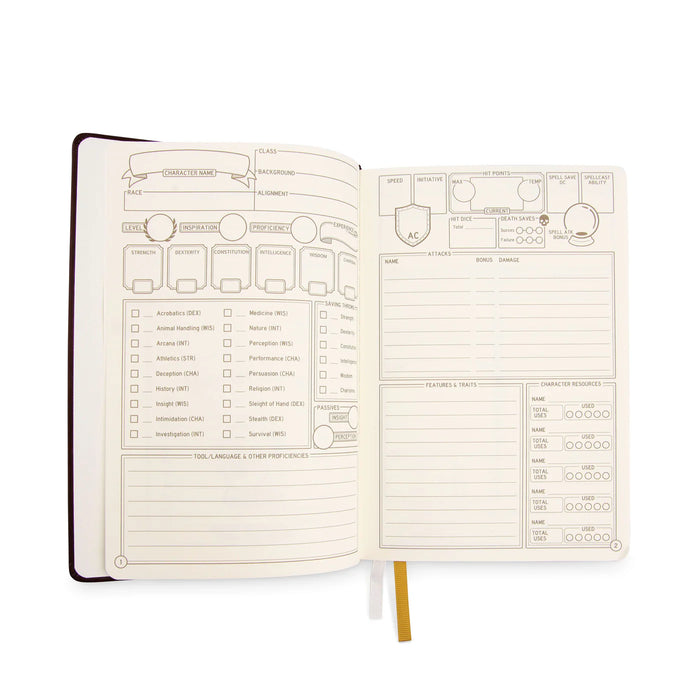 CLASS
CHARACTER NAME
BACKGROUND
RACE
ALIGNMENT
LEVEL
INSPIRATION
PROFICIENCY
STRENGTH
DEXTERITY
CONSTITUTION
INTELLIGENCE
WISDOM
Acrobatics (DEX)
Animal Handling (WIS)
Arcana (INT)
Athletics (STR)
Deception (CHA)
History (INT)
Insight (WIS)
Intimidation (CHA)
Investigation (INT)
Medicine (WIS)
Nature (INT)
Perception (WIS)
Performance (CHA)
Persuasion (CHA)
Religion (INT)
Sleight of Hand (DEX)
Stealth (DEX)
Survival (WIS)
SAVING THROWS
Strength
Dexterity
Constitution
Intelligence
Wisdom
Charisma
PASSIVES
INSIGHT
PERCEPTION
TOOL/LANGUAGE & OTHER PROFICIENCIES
1
SPEED
INITIATIVE
HIT POINTS
MAX
TEMP
CURRENT
SPELL SAVE
DC
SPELLCAST
ABILITY
AC
HIT DICE
Total
DEATH SAVES
Success
Failure
SPELL ATK
BONUS
ATTACKS
NAME BONUS DAMAGE
FEATURES & TRAITS
CHARACTER RESOURCES
NAME
TOTAL
USES
USED
NAME
TOTAL
USES
USED
NAME
TOTAL
USES
USED
NAME
TOTAL
USES
USED
NAME
TOTAL
USES
USED
2